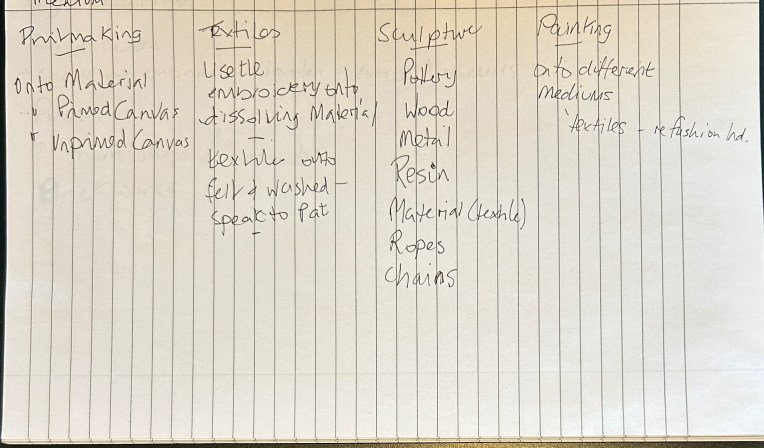 Printmaking
onto Material
" Primed Canvas
" Unprimed Canvas
Textiles
Use the
embroidery onto
dissolving Material
textile onto
felt & washed -
speak to Pat
Sculpture
Pottery
Wood
Metal
Resin
Material (textile)
Ropes
Chains
Painting
onto different
mediums
textiles - refashion hd.